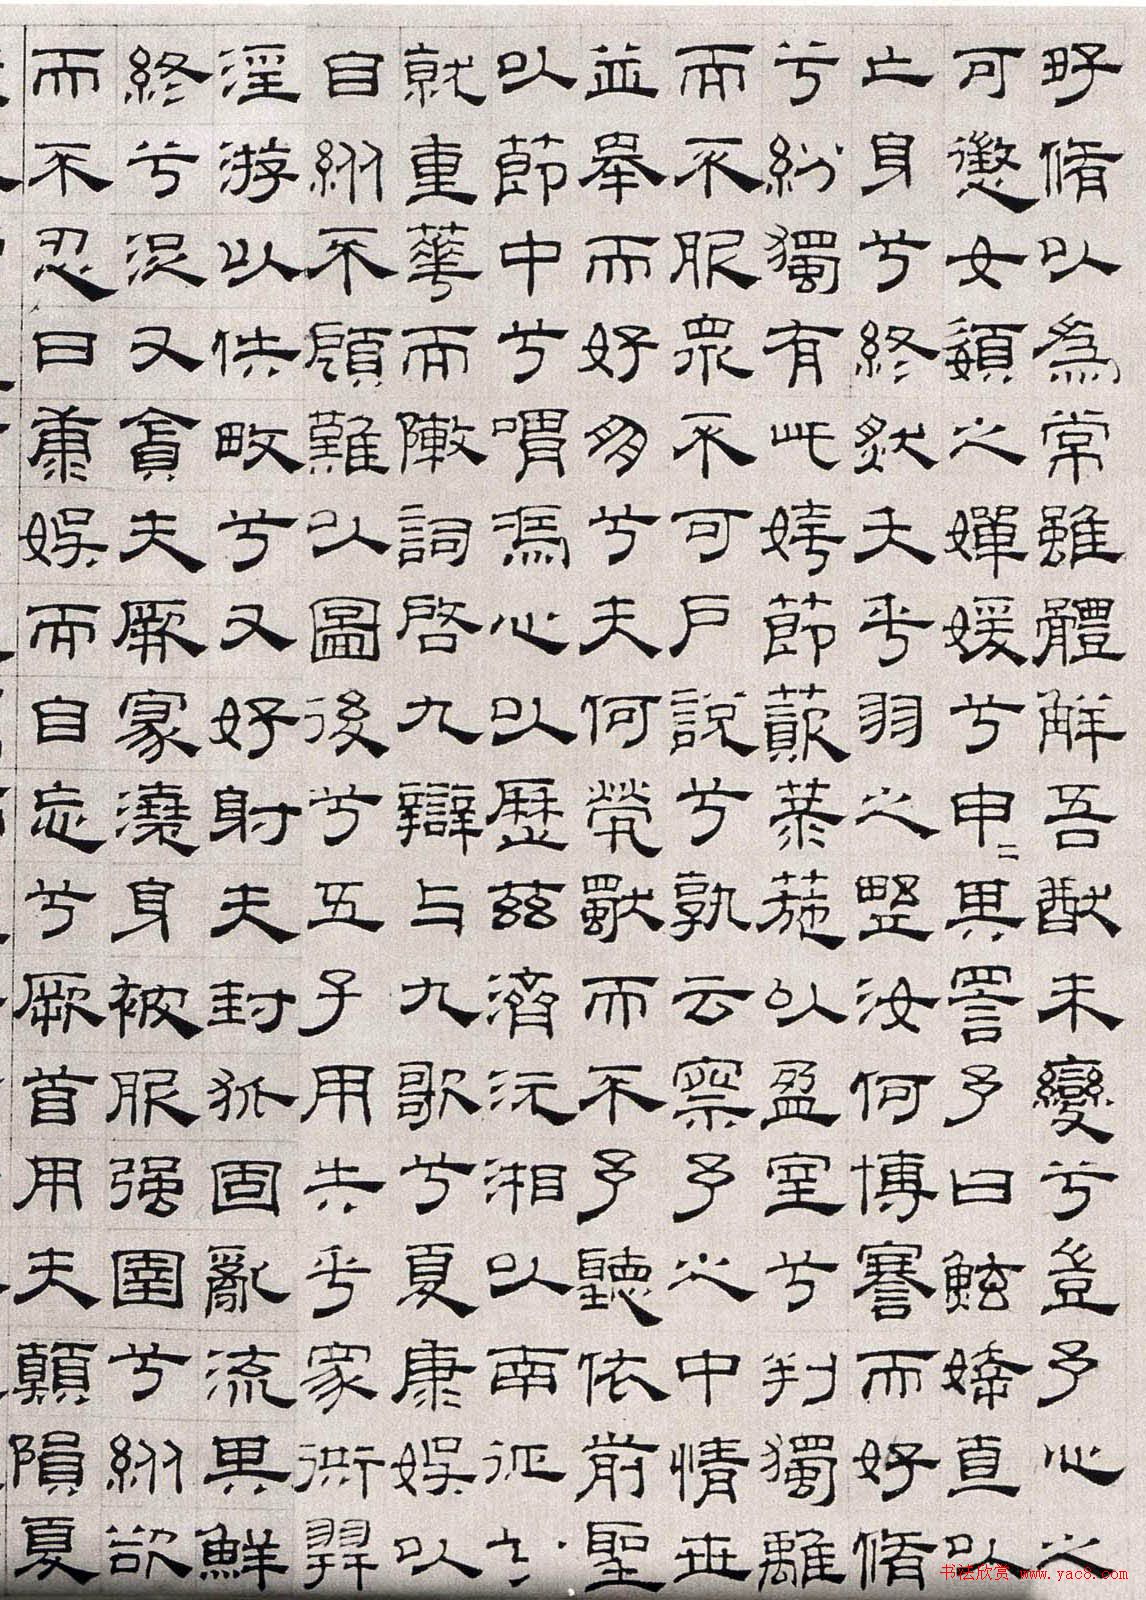 脩以為常雖體解吾猶未變兮豈予心之
可懲女嬃之嬋媛兮申=其詈予曰鮌婞直以
亡身兮終然夭乎羽之野汝何博謇而好脩
兮紛獨有此姱節薋菉葹以盈室兮判獨離
而不服眾不可戶說兮孰云察予之中情世
並舉而好朋兮夫何煢獨而不予聽依前聖
以節中兮喟馮心以歷茲濟沅湘以南征
就重華而敶詞啓九辯与九歌兮夏康娛以
自縱不顧難以圖後兮五子用失乎家衖羿
淫游以佚畋兮又好射夫封狐固亂流其鮮
終兮浞又貪夫厥家澆身被服强圉兮縱欲
而不忍日康娛而自忘兮厥首用夫顛隕夏
书法欣赏 www.yac8.com